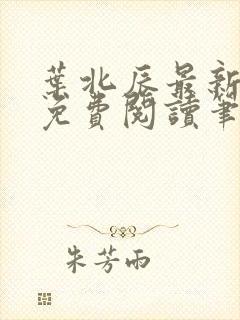 葉北辰最新
免費閱讀筆
朱芳雨